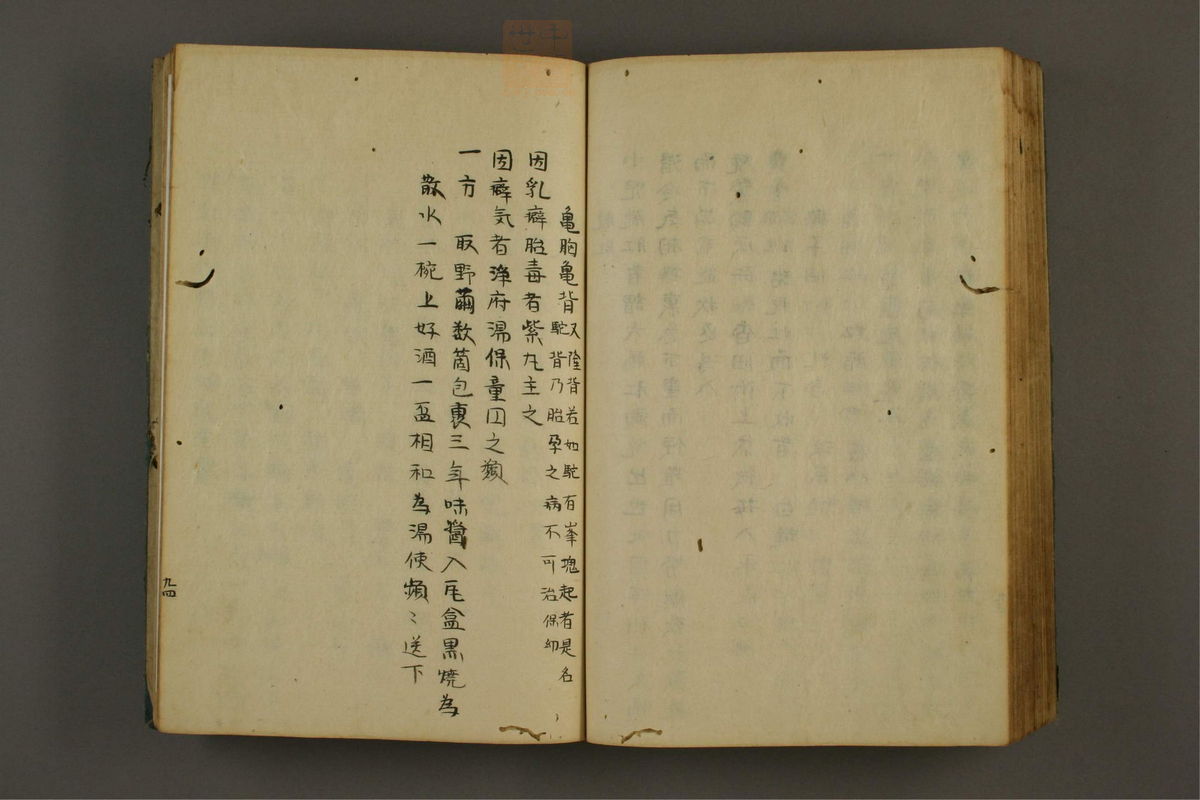 亀胸亀背 又隆背若如駝有峯塊起者是名
駝背乃胎孕之病不可治保幼
因乳癖胎毒者紫丸主之
因癖気者浄府湯保童円之類
一方 取野繭数箇包裹三年味醤入瓦盒黒焼為
散水一椀上好酒一盃相和為湯使頻〻送下
九四